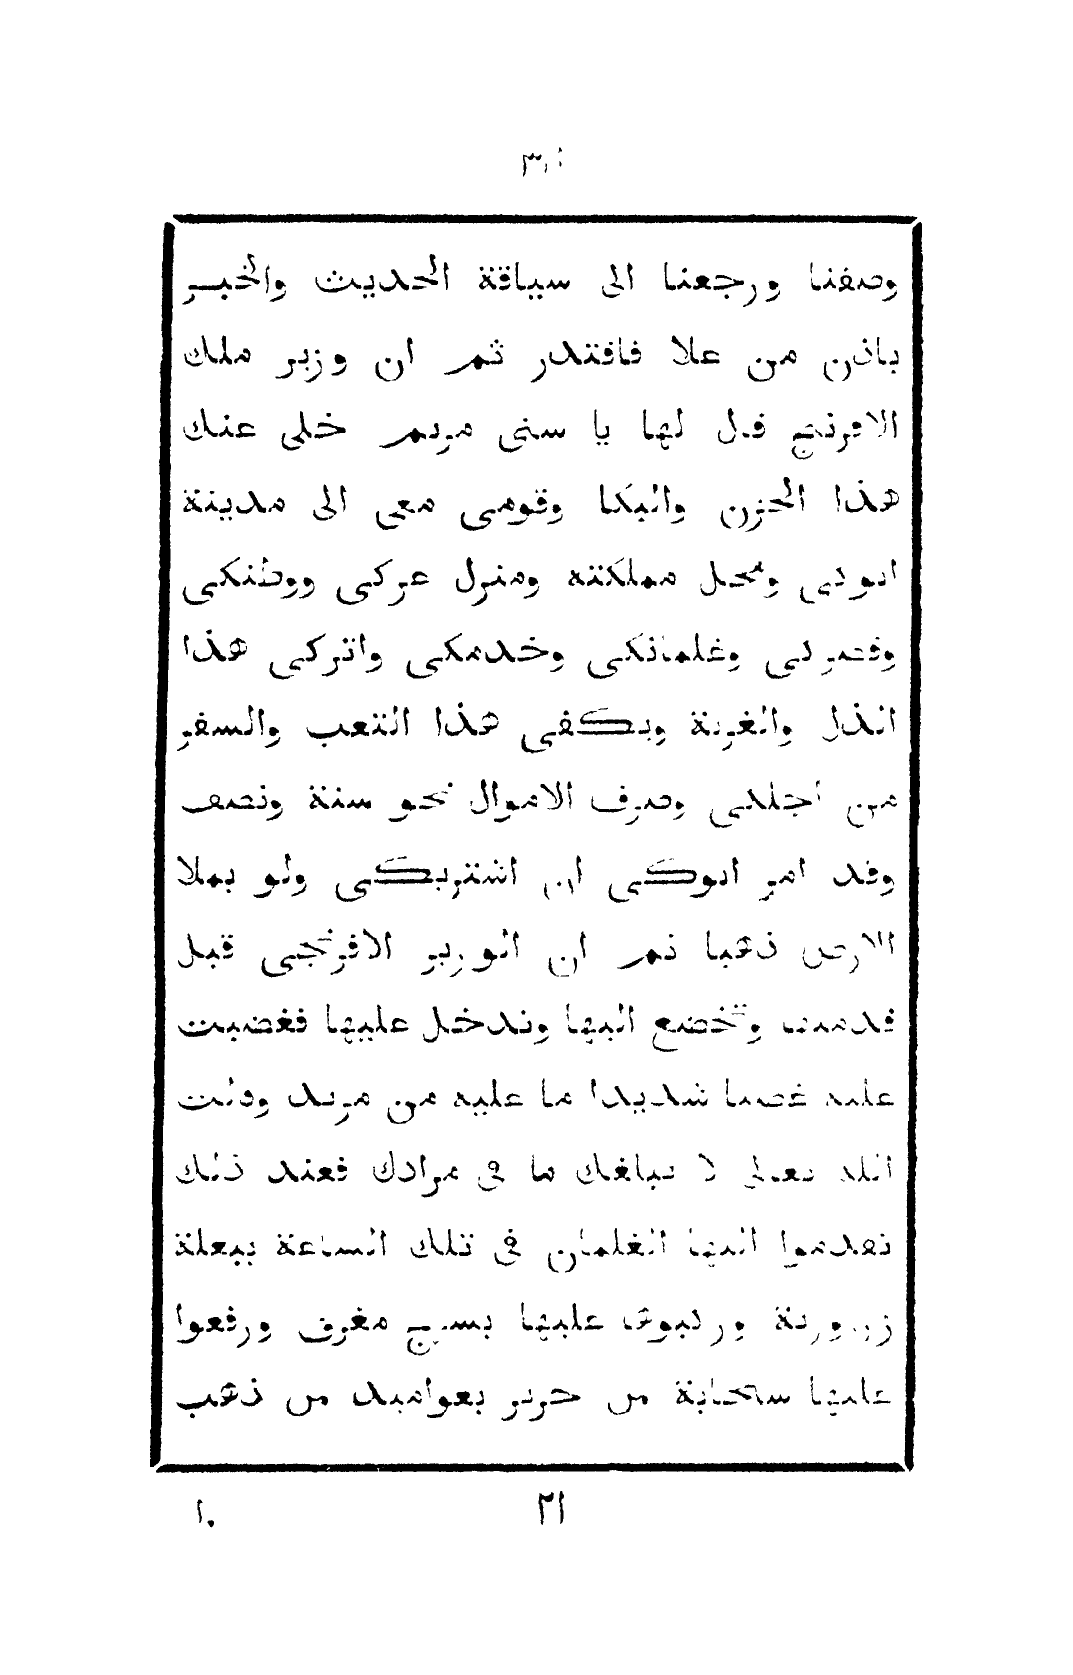 وصفنا ورجعنا الى سياقة الحديث والخبر
باذن من علا فاقتدر ثم ان وزير ملك
الافرنج قال لها يا ستى مريم خلى عنك
هذا الحزن والبكا وقومى معى الى مدينة
ابوكى ومحل مملكته ومنزل عزكى ووطنكى
وقصركى وغلمانكى وخدمكى واتركى هذا
الذل والغربة ويكفى هذا التعب والسفر
من اجلكى وصرف الاموال نحو سنة ونصف
وقد امر ابوكى ان اشتريكى ولو بملا
الارض ذهبا ثم ان الوزير الافرنجى قبل
قدميها وتخضع اليها وتدخل عليها فغضبت
عليه غضبا شديدا ما عليه من مزيد وقالت
الله تعالى لا يبلغك ما فى مرادك فعند ذلك
تقدموا اليها الغلمان فى تلك الساعة ببغلة
زرزورية وركبوها عليها بسرج مغرق ورفعوا
عليها سحابة من حرير بعواميد من ذهب
٢١
١٠